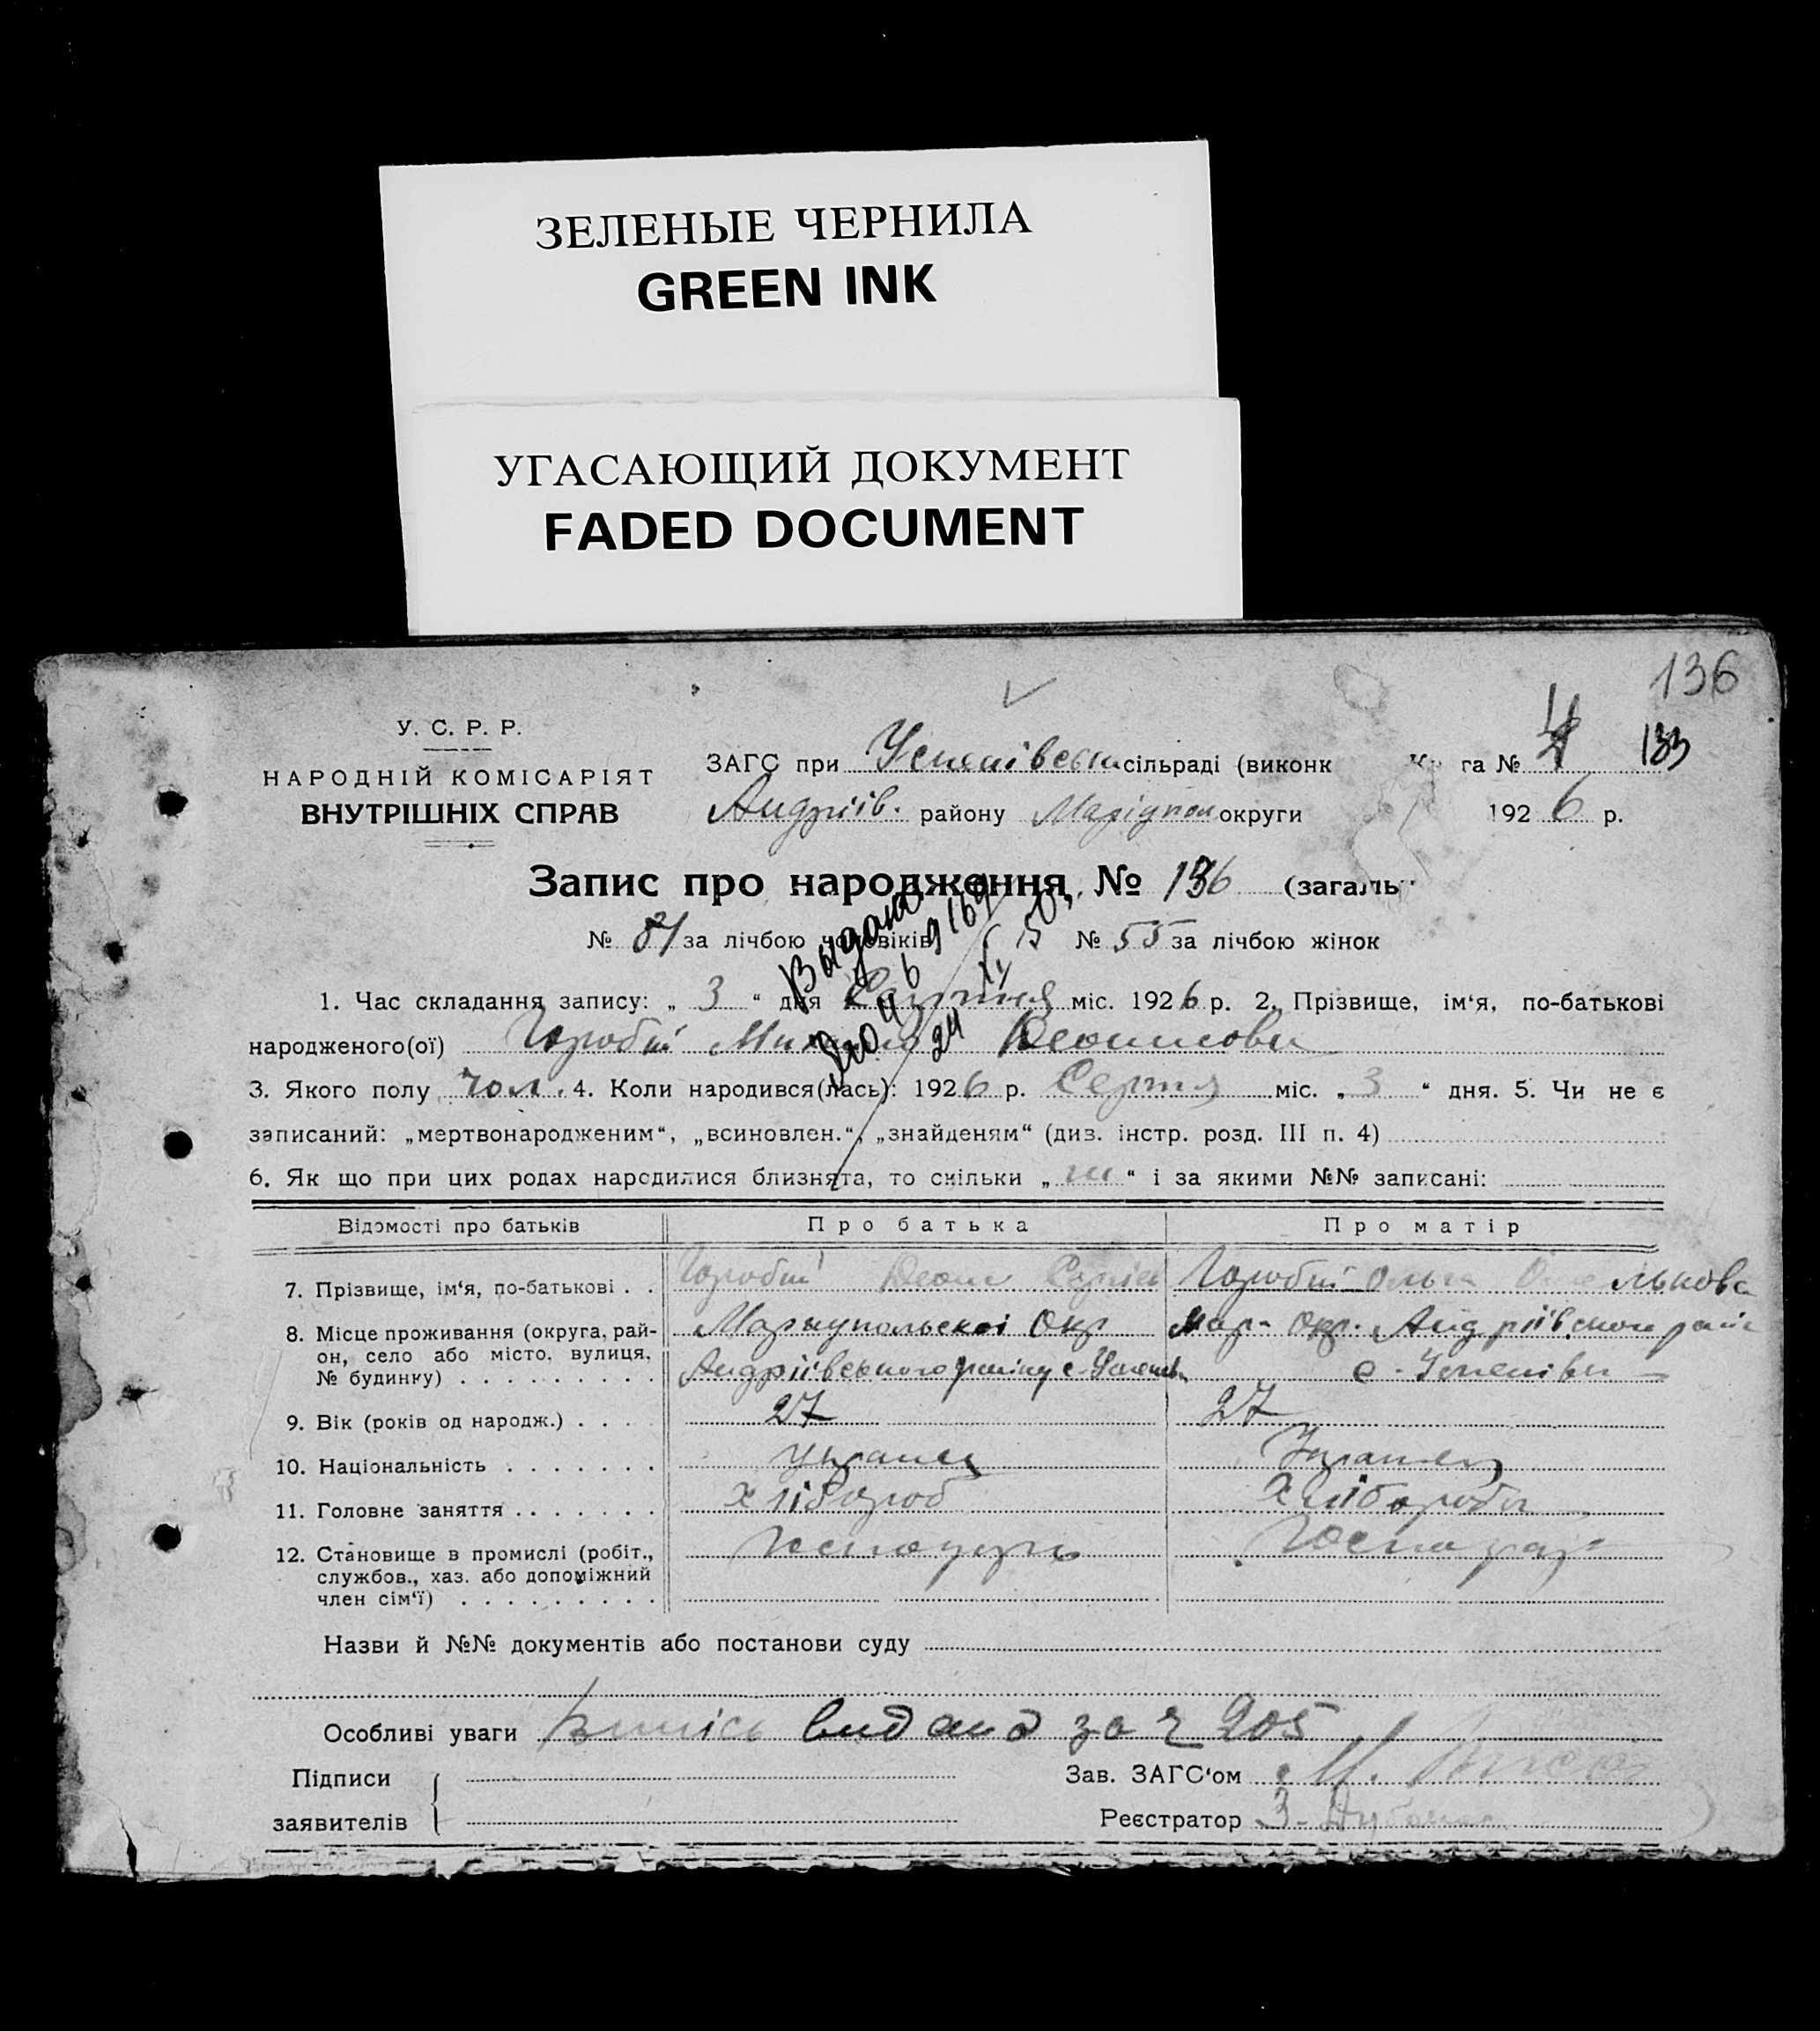 ЗЕЛЕНЫЕ ЧЕРНИЛА
GREEN INK
УГАСАЮЩИЙ ДОКУМЕНТ
FADED DOCUMENT
136
133
У. С. Р. Р.
НАРОДНІЙ КОМІСАРІЯТ
ВНУТРІШНІХ СПРАВ
ЗАГС при Успенівськ сільраді (виконк га № 4
Андріїв. району Маріупол округи 1926 р.
Запис про народження № 136 (загаль
№ 81 за лічбою чоловіків № 55 за лічбою жінок
Выдано
24
1. Час складання запису: „ 3 “ дня Серпня міс. 1926 р. 2. Прізвище, ім‘я, по-батькові
народженого(ої) Горобій
3. Якого полу чол. 4. Коли народився(лась): 1926 р. Серпня міс. „ 3 “ дня. 5. Чи не є
записаний: „мертвонародженим“, „всиновлен.“, „знайденям“ (диз. інстр. розд. III п. 4)
6. Як що при цих родах народилися близнята, то скільки „ “ і за якими №№ записані:
Відомості про батьків Про батька Про матір
7. Прізвище, ім‘я, по-батькові . . Горобій Горобій Ольга
8. Місце проживання (округа, рай- Марыупольскої Окр Мар- Окр. Андріївського
он, село або місто, вулиця, Андріївського с. с. Успенівки
№ будинку) . . . . . . . . .
9. Вік (років од народж.) . . . . 27 27
10. Національність . . . . . . . украинец
11. Головне заняття . . . . . . . хлібороб хлібороби
12. Становище в промислі (робіт., Господарь Господарь
службов., хаз. або допоміжний
член сім‘ї) . . . . . . . . .
Назви й №№ документів або постанови суду
Особливі уваги Випісь видана за ч 205
Підписи Зав. ЗАГС‘ом
заявителів Реєстратор